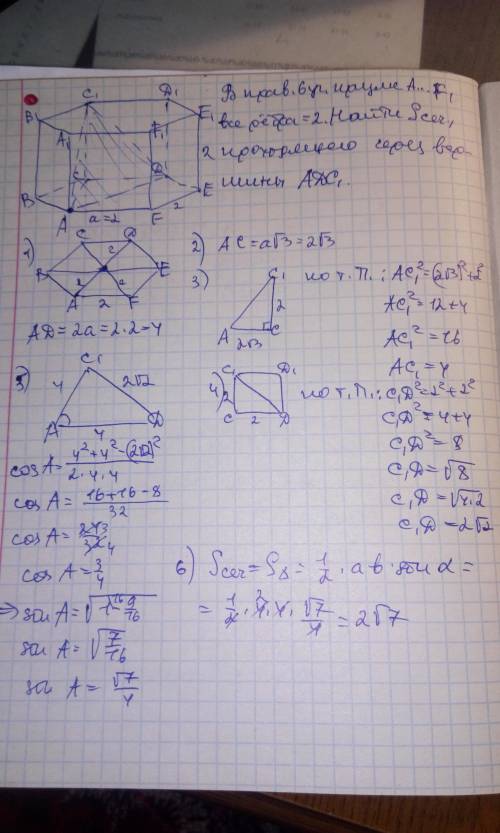 В прав. 6уг. призме A...F₁
все рёбра=2. Найти Sсеч,
проходящего через вер-
шины ADC₁.
C₁ D₁
B₁ E₁
A₁ F₁
2
C D
B E
A a=2 F 2
1)
C D
2
B E
2 2
A 2 F
AD=2a=2·2=4
2) AC=a√3=2√3
3)
C₁
2
A C
2√3
по т. П.: AC₁²=(2√3)²+2²
AC₁²=12+4
AC₁²=16
AC₁=4
4)
C₁ D₁
2
C 2 D
по т. П.: C₁D²=2²+2²
C₁D²=4+4
C₁D²=8
C₁D=√8
C₁D=√4·2
C₁D=2√2
5)
C₁
4 2√2
A 4 D
cos A= 4²+4²-(2√2)² / 2·4·4
cos A= 16+16-8 / 32
cos A= 24 3 / 32 4
cos A= 3/4
=> sin A=√1 16 - 9/16
sin A=√7/16
sin A= √7/4
6) Sсеч=S∆= 1/2·ab·sin α=
= 1/2·4 2·4·√7/4=2√7